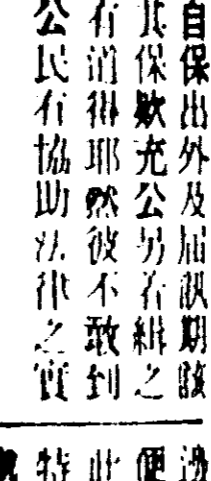 自保出外及屆訊期該
其保欵充公另行緝之
有消得耶然彼不敢到
公民有協助法律之責
過
便
此
特